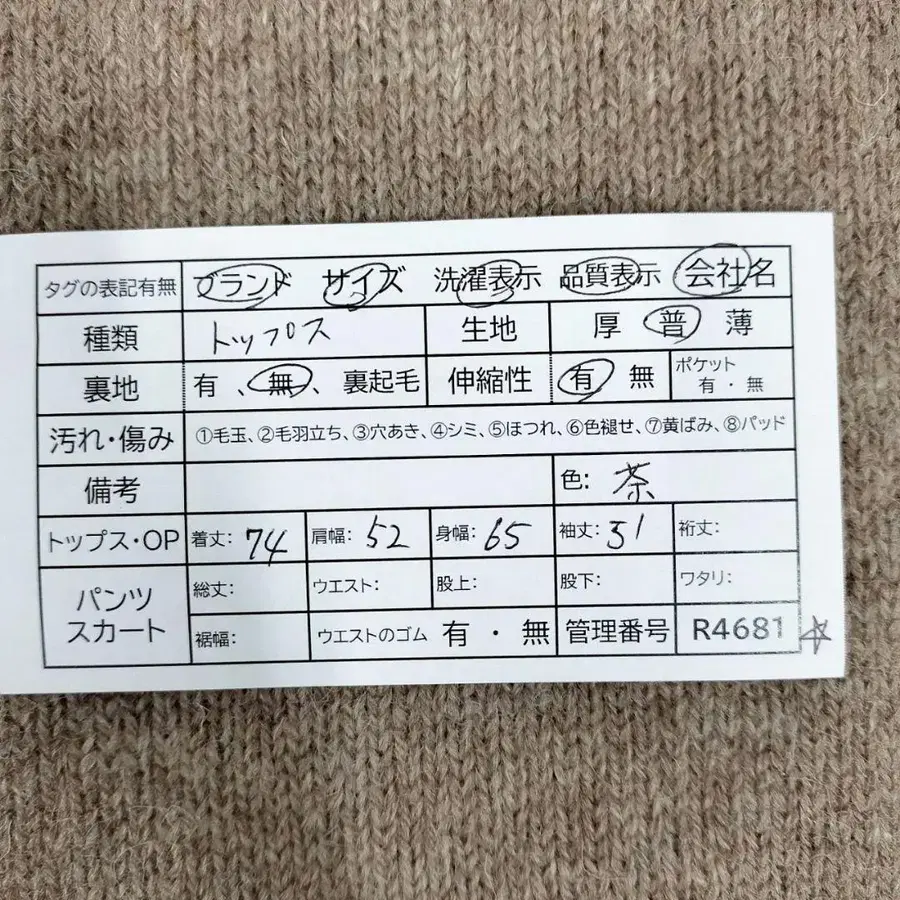 タグの表記有無 ブランド サイズ 洗濯表示 品質表示 会社名
種類 トップス 生地 厚 普 薄
裏地 有 、無、裏起毛 伸縮性 有 無 ポケット 有・無
汚れ・傷み ①毛玉、②毛羽立ち、③穴あき、④シミ、⑤ほつれ、⑥色褪せ、⑦黄ばみ、⑧パッド
備考 色: 茶
トップス・OP 着丈: 74 肩幅: 52 身幅: 65 袖丈: 51 裄丈:
パンツ スカート 総丈: ウエスト: 股上: 股下: ワタリ:
裾幅: ウエストのゴム 有・無 管理番号 R4681